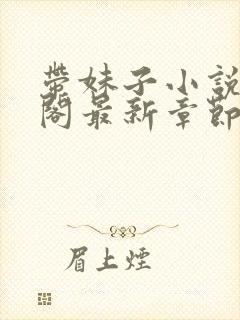 带妹子小說
閣最新章節
眉上煙